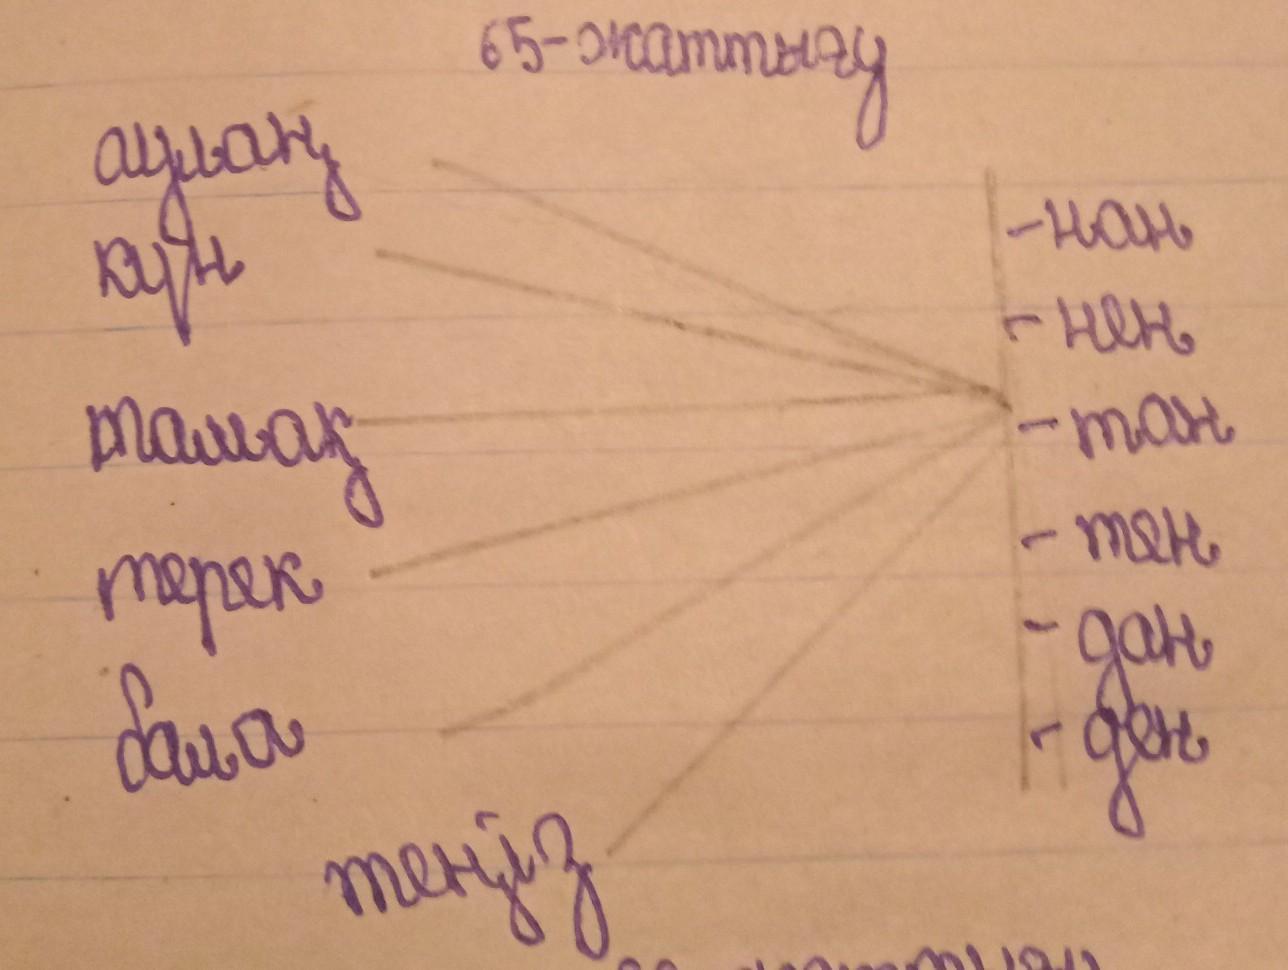 65-жаттығу
аулаң
-нан
күн
-нен
тамақ
-тан
терек
-тен
-дан
бала
-ден
теңіз